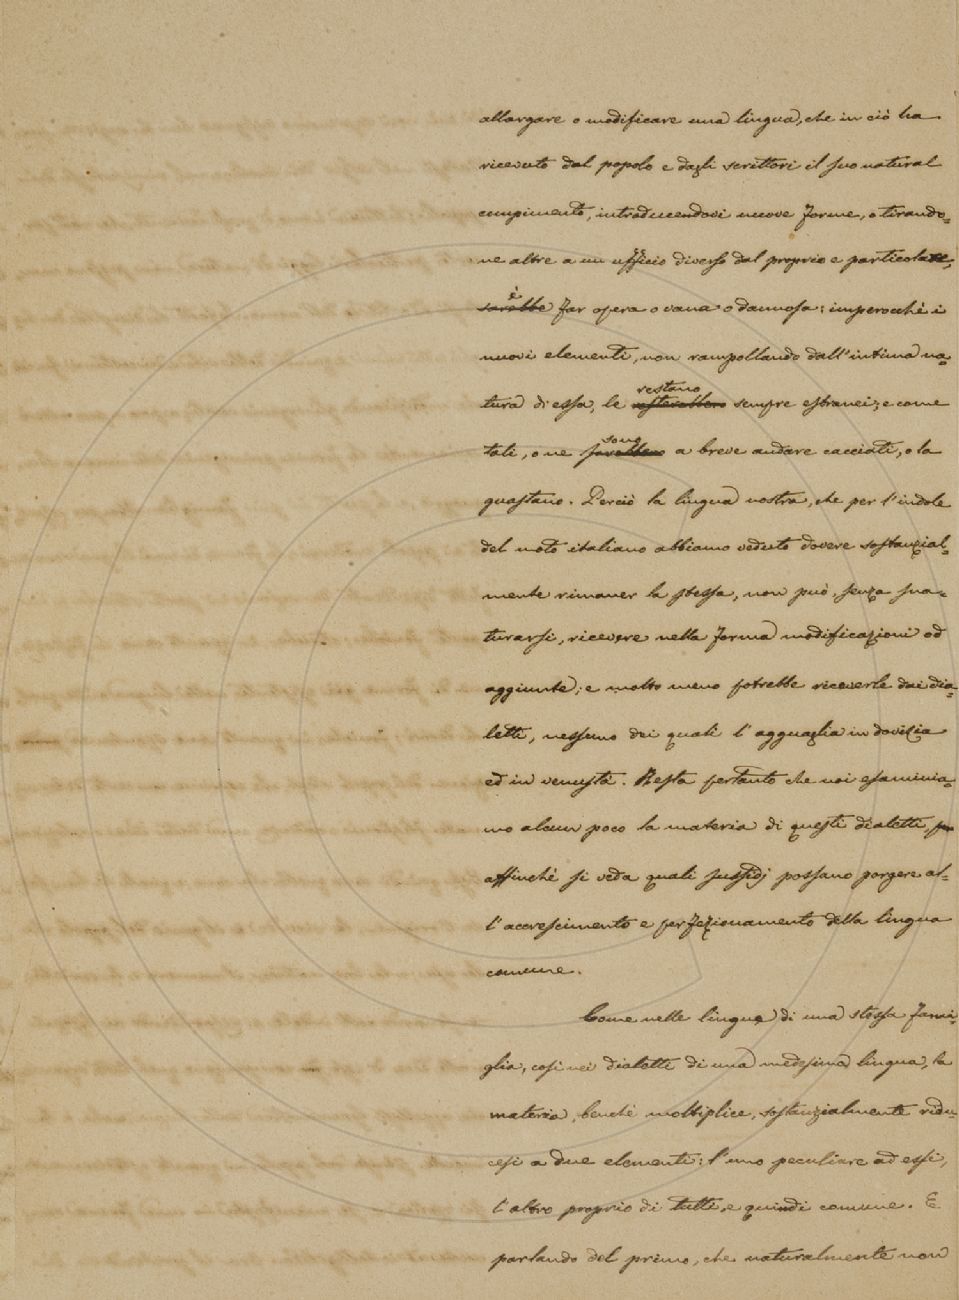 allargare o modificare una lingua, che in ciò ha
ricevuto dal popolo e dagli scrittori il suo natural
compimento, introducendovi nuove forme, o tirando-
ne altre a un ufficio diverso dal proprio e particolare,
è
sarebbe far opera o vana o dannosa: imperocchè i
nuovi elementi, non rampollando dall'intima na-
restano
tura di essa, le resterebbero sempre estranei; e come
sono
tali, o ne sarebbero a breve andare cacciati, o la
guastano. Perciò la lingua nostra, che per l'indole
del moto italiano abbiamo veduto dovere sostanzial-
mente rimaner la stessa, non può, senza sna-
turarsi, ricevere nella forma modificazioni od
aggiunte; e molto meno potrebbe riceverle dai dia-
letti, nessuno dei quali l'agguaglia in dovizia
ed in venustà. Resta pertanto che noi esaminia-
mo alcun poco la materia di questi dialetti, per
affinchè si veda quali sussidj possano porgere al-
l'accrescimento e perfezionamento della lingua
comune.
Come nelle lingue di una stessa fami-
glia, così nei dialetti di una medesima lingua, la
materia, benchè moltiplice, sostanzialmente ridu-
cesi a due elementi: l'uno peculiare ad essi,
l'altro proprio di tutti, e quindi comune. E
parlando del primo, che naturalmente non